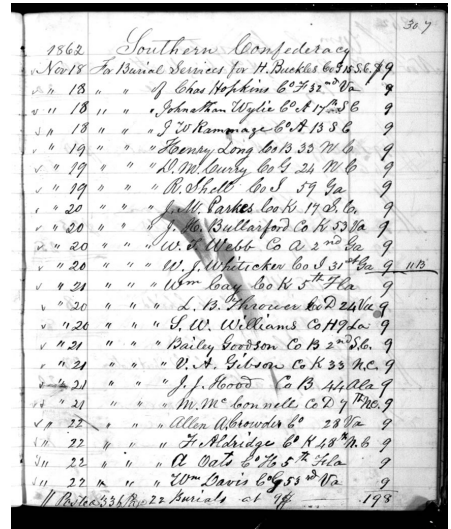 307
1862 Southern Confederacy
v Nov 18 For Burial Services for H. Buckles Co G 15 S.C. 9
v " 18 " " " Chas Hopkins Co F 32nd Va 9
" 18 " " " Johnathan Wylie Co A 17th S C 9
" 18 " " " J W Rammage Co A 13 S C 9
v " 19 " " " Henry Long Co B 33 N C 9
v " 19 " " " D. M. Curry Co G 24 N C 9
v " 19 " " " R. Shell Co I 59 Ga 9
v " 20 " " " J. W. Parkes Co K 17 S. C. 9
v " 20 " " " J. H. Bullarford Co K 53 Va 9
v " 20 " " " W. T. Webb Co A 2nd Ga 9
v " 20 " " " W. J. Whiticker Co I 31st Ga 9 11 B
v " 21 " " " Wm Cay Co K 5th Fla 9
v 20 " " " L. B. Thrower Co D 24 Va 9
v " 20 " " " S. W. Williams Co H 9 La 9
v " 21 " " " Bailey Goodson Co B 2nd S.C. 9
v " 21 " " " V. A. Gibson Co K 33 N.C. 9
21 " " " J. J. Hood Co B 44 Ala 9
v " 21 " " " M. McConnell Co D 7th N.C. 9
v " 22 " " " Allen A. Crowder Co 28 Va 9
" 22 " " " F Aldridge Co K 48th N. C 9
" 22 " " " A Oats Co H 5th Fla 9
" 22 " " " Wm Davis Co G 53rd Va 9
Posted 336 22 Burials at 9 198